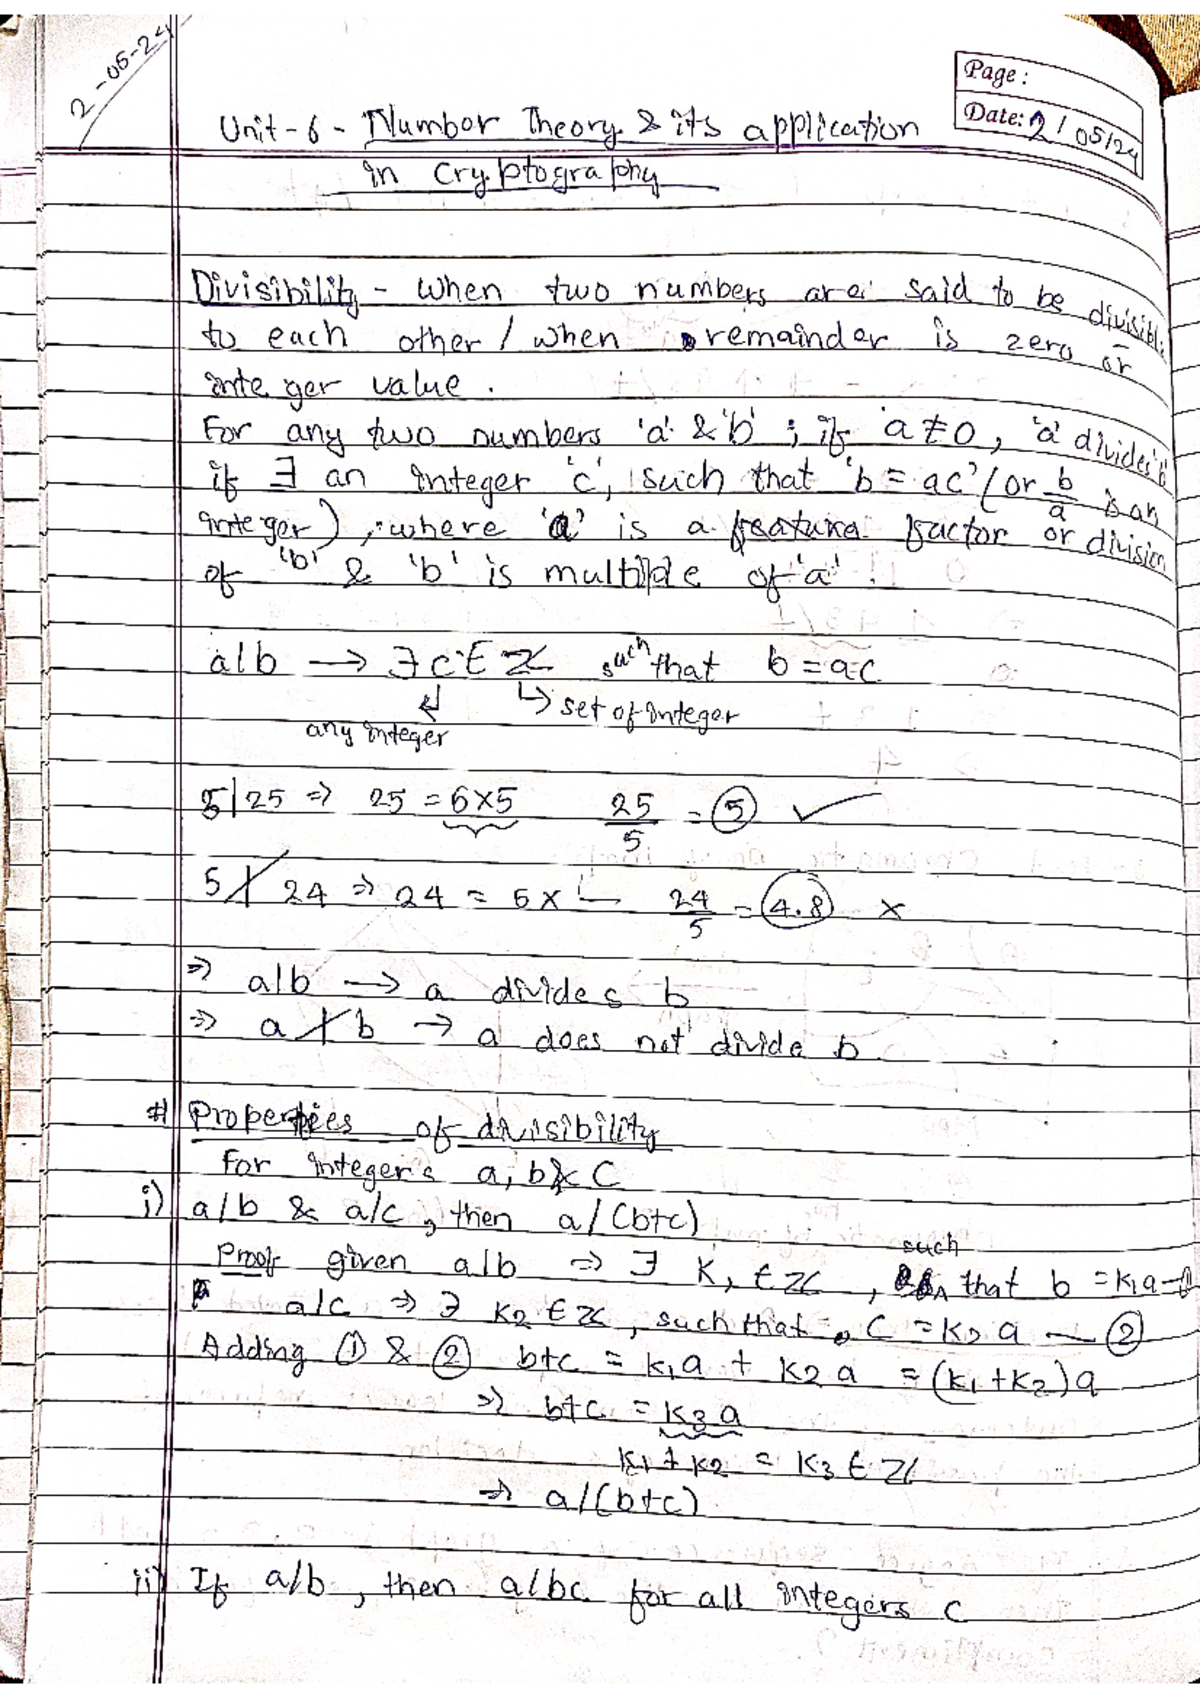 2-05-24
Page:
Date: 2/05/24
Unit-6 - Number Theory & its application
in Cryptography
Divisibility - when two numbers are said to be divisible
to each other / when remainder is zero or
integer value.
For any two numbers 'a' & 'b' ; if a≠0, 'a' divides 'b'
if ∃ an integer 'c', such that 'b = ac' (or b/a is an
integer), where 'a' is a factor or division
of 'b' & 'b' is multiple of 'a'.
a|b → ∃ c ∈ Z such that b = a·c
any integer
set of integer
5|25 ⇒ 25 = 5×5 25/5 = 5 ✓
5∤24 ⇒ 24 = 5× 24/5 = 4.8 ×
⇒ a|b → a divides b
⇒ a∤b → a does not divide b
# Properties of divisibility
For integers a, b & c
i) a/b & a/c, then a/(b+c)
Proof given a|b ⇒ ∃ K₁ ∈ Z, such that b = k₁a - ①
a/c ⇒ ∃ K₂ ∈ Z, such that C = K₂ a — ②
Adding ① & ② b+c = k₁a + K₂ a = (k₁+K₂)a
⇒ b+c = K₃ a
K₁ + K₂ = K₃ ∈ Z
⇒ a/(b+c)
ii) If a/b, then a/bc for all integers c